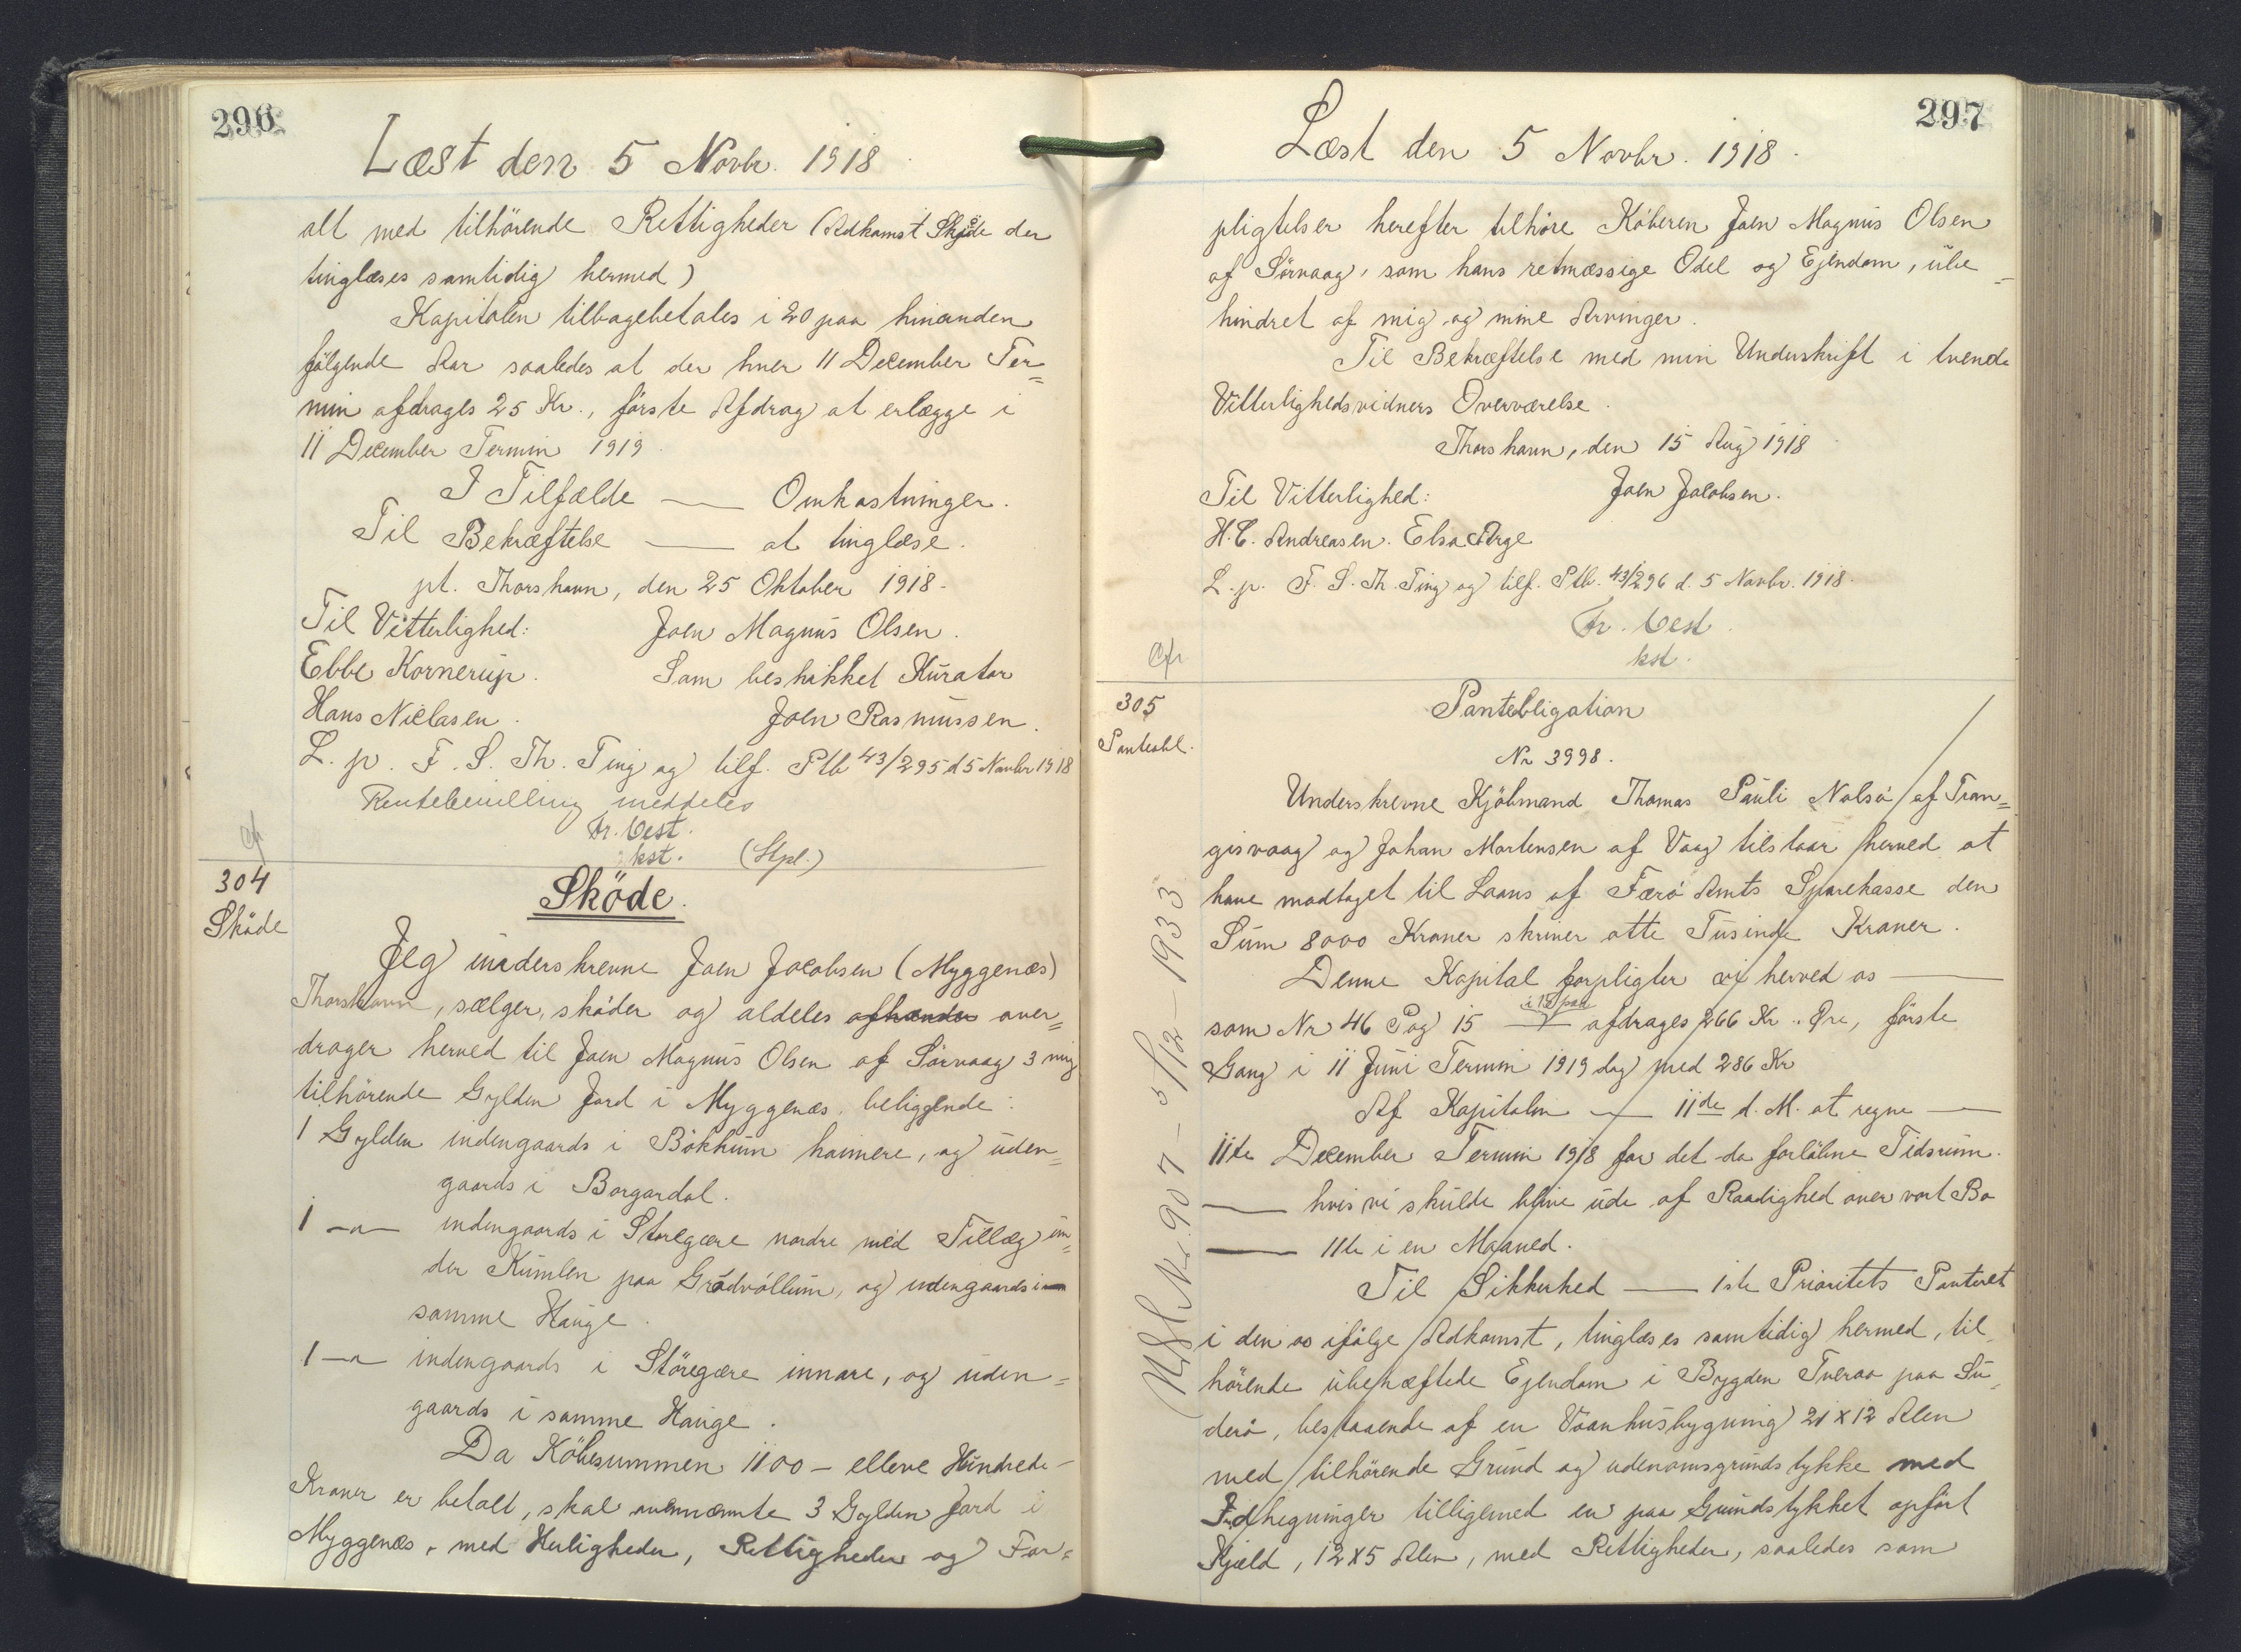 296
Læst den 5 Novbr. 1918
alt med tilhörende Rettigheder (Adkomst Sköde der
tinglæses samtidig hermed)
Kapitalen tilbagebetales i 20 paa hinanden
fölgende Aar saaledes at der hver 11 December Ter=
min afdrages 25 Kr., förste Afdrag at erlægge i
11 December Termin 1919
I Tilfælde — Omkostninger.
Til Bekræftelse — at tinglæse.
pt. Thorshavn, den 25 Oktober 1918.
Til Vitterlighed: Joen Magnus Olsen.
Ebbe Kornerup. Som beskikket Kurator
Hans Niclasen. Joen Rasmussen.
L. p. F. S. Th. Ting og tilf. Ptb 43/295 d 5 Novbr 1918
Rentebevilling meddeles
Fr. Vest.
kst. (Stpl.)
Cfr
304
Sköde
Sköde.
Jeg underskrevne Joen Jacobsen (Myggenæs)
Thorshavn, sælger, sköder og aldeles afhænder over=
drager herved til Joen Magnus Olsen af Sörvaag 3 mig
tilhörende Gylden Jord i Myggenæs, beliggende:
1 Gylden indengaards i Bökkum haimere, og uden=
gaards i Borgardal.
1 —"— indengaards i Storegære nordre med Tillæg un=
der Kumlen paa Grödvöllum, og udengaards i
samme Hauge.
1 —"— indengaards i Störegære innare, og uden=
gaards i samme Hauge.
Da Köbesummen 1100 - elleve Hundrede -
Kroner er betalt, skal ovennævnte 3 Gylden Jord i
Myggenæs, med Herligheder, Rettigheder og For=
297
Læst den 5 Novbr. 1918.
pligtelser herefter tilhöre Köberen Joen Magnus Olsen
af Sörvaag, som hans retmæssige Odel og Ejendom, ube=
hindret af mig og mine Arvinger.
Til Bekræftelse med min Underskrift i tvende
Vitterlighedsvidners Overværelse.
Thorshavn, den 15 Aug 1918
Til Vitterlighed: Joen Jacobsen.
H. C. Andreasen. Elsa Arge
L. p. F. S. Th. Ting og tilf. Ptb. 43/296 d. 5 Novbr. 1918.
Fr. Vest.
kst.
Cfr
305
Panteobl.
Panteobligation
Nr 3998.
Underskrevne Kjöbmand Thomas Pauli Nolsö af Tran=
gisvaag og Johan Mortensen af Vaag tilstaar herved at
have modtaget til Laans af Færö Amts Sparekasse den
Sum 8000 Kroner skriver otte Tusinde Kroner.
Denne Kapital forpligter vi herved os —
i 15 paa
som Nr 46 Pag 15 — afdrages 266 Kr. Øre, förste
Gang i 11 Juni Termin 1919 dog med 286 Kr
Af Kapitalen — 11de d. M. at regne —
11te December Termin 1918 for det da forlöbne Tidsrum.
— hvis vi skulde blive ude af Raadighed over vort Bo
— 11te i en Maaned.
Til Sikkerhed — 1ste Prioritets Panteret
i den os ifölge Adkomst, tinglæses samtidig hermed, til
hörende ubehæftede Ejendom i Bygden Tveraa paa Su=
derö, bestaaende af en Vaanhusbygning 21 x 12 Alen
med tilhörende Grund og udenomsgrundstykke med
Indhegninger tilligemed en paa Grundstykket opfört
Hjæld, 12 x 5 Alen, med Rettigheder, saaledes som
Nr. 907 - 5/12 - 1933